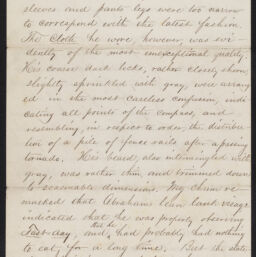 sleeves and pants legs were too narrow
to correspond with the latest fashion.
The Cloth he wore, however was evi-
dently of the most unexceptional quality.
His coarse dark locks, rather closely shorn,
slightly sprinkled with gray, were arrang
ed in the most careless confusion, indi
cating all points of the compass, and
resembling, in respect to order, the distribu
tion of a pile of fence rails after a passing
tornado. His beard, also intermingled with
gray, was rather thin, and trimmed down
to reasonable dimensions. My chum re-
marked that Abraham's lean lank visage
indicated that he was properly observing
Fast-day, and that he had probably had nothing
to eat, for a long time. But the state